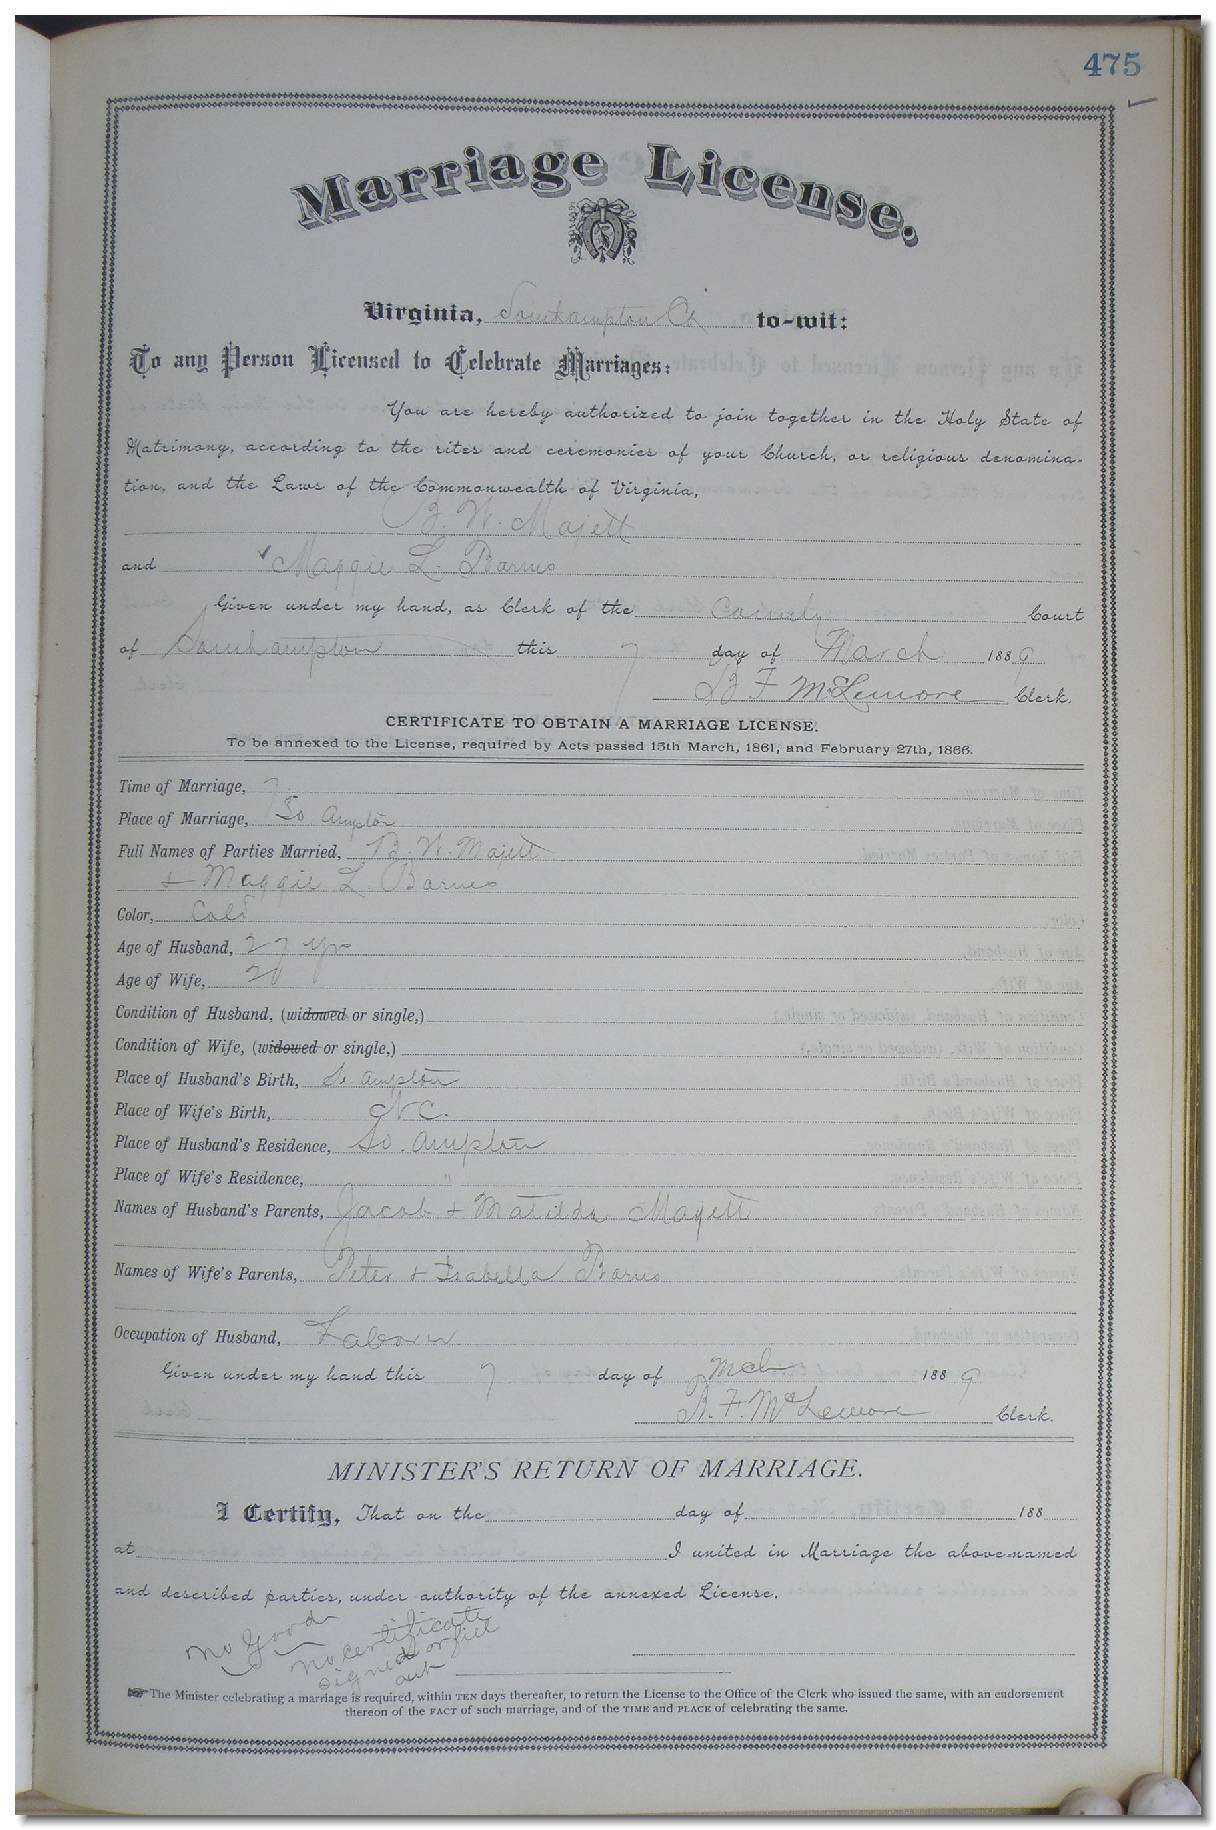 475
Marriage License.
Virginia, Southampton Co to-wit:
To any Person Licensed to Celebrate Marriages:
You are hereby authorized to join together in the Holy State of
Matrimony, according to the rites and ceremonies of your Church, or religious denomina-
tion, and the Laws of the Commonwealth of Virginia,
B. W. Majett
and Maggie L. Barnes
Given under my hand, as Clerk of the County Court
of Southampton this 7 day of March 1889
B F McLemore Clerk.
CERTIFICATE TO OBTAIN A MARRIAGE LICENSE.
To be annexed to the License, required by Acts passed 15th March, 1861, and February 27th, 1866.
Time of Marriage, 7
Place of Marriage, So ampton
Full Names of Parties Married, B. W. Majett
+ Maggie L. Barnes
Color, Cold
Age of Husband, 27 yrs
Age of Wife, 20
Condition of Husband, (widowed or single,)
Condition of Wife, (widowed or single,)
Place of Husband's Birth, So ampton
Place of Wife's Birth, N C.
Place of Husband's Residence, So. ampton
Place of Wife's Residence, "
Names of Husband's Parents, Jacob + Matilda Majett
Names of Wife's Parents, Peter + Isabella Barnes
Occupation of Husband, Laborer
Given under my hand this 7 day of Mch 1889
B. F. McLemore Clerk.
MINISTER'S RETURN OF MARRIAGE.
I Certify, That on the day of 188
at I united in Marriage the above-named
and described parties, under authority of the annexed License.
No Good
no certificate
signed or fill
out
☞ The Minister celebrating a marriage is required, within TEN days thereafter, to return the License to the Office of the Clerk who issued the same, with an endorsement
thereon of the FACT of such marriage, and of the TIME and PLACE of celebrating the same.